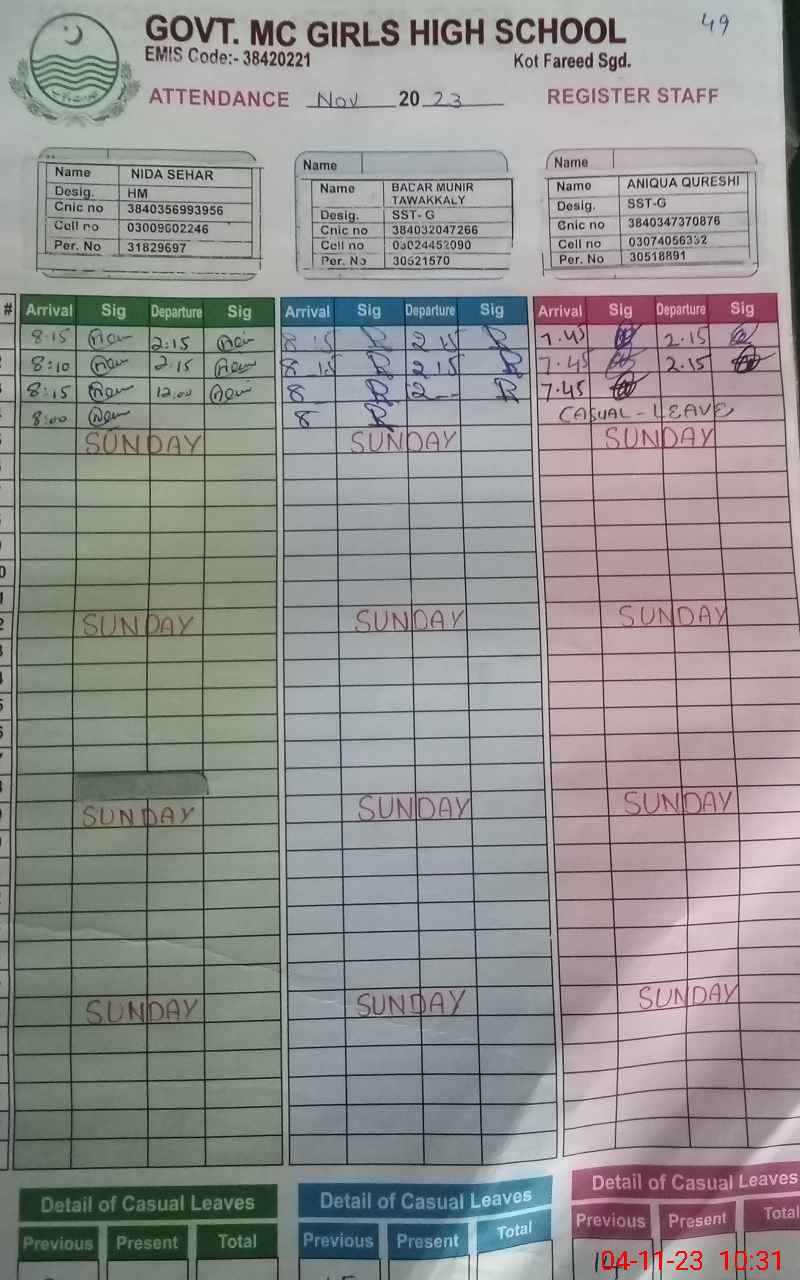 GOVT. MC GIRLS HIGH SCHOOL
49
EMIS Code:- 38420221 Kot Fareed Sgd.
ATTENDANCE Nov 2023 REGISTER STAFF
Name NIDA SEHAR
Desig. HM
Cnic no 3840356993956
Cell no 03009602246
Per. No 31829697
Name
Name BADAR MUNIR TAWAKKALY
Desig. SST- G
Cnic no 384032047266
Cell no 03024452090
Per. No 30521570
Name
Name ANIQUA QURESHI
Desig. SST-G
Cnic no 3840347370876
Cell no 03074056332
Per. No 30518891
# Arrival Sig Departure Sig Arrival Sig Departure Sig Arrival Sig Departure Sig
8.15 2:15 8 15 2 15 7.45 2.15
8:10 2.15 8 15 2 15 7.45 2.15
8:15 12.00 8 2 7.45
8:00 8 CASUAL - LEAVE
SUNDAY SUNDAY SUNDAY
SUNDAY SUNDAY SUNDAY
SUNDAY SUNDAY SUNDAY
SUNDAY SUNDAY SUNDAY
Detail of Casual Leaves Detail of Casual Leaves Detail of Casual Leaves
Previous Present Total Previous Present Total Previous Present Total
04-11-23 10:31